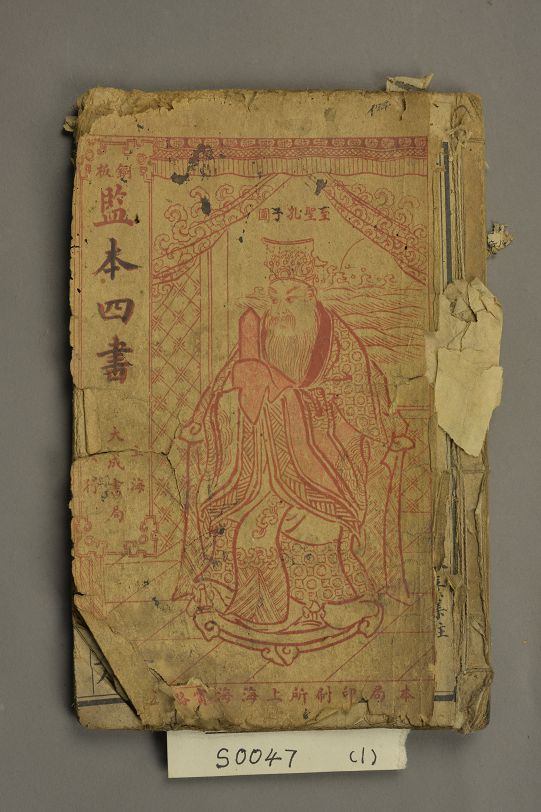 至聖孔子圖
銅板
監本四書
上海
大成書局
行
本局印刷所上海海寧路
S0047 (1)